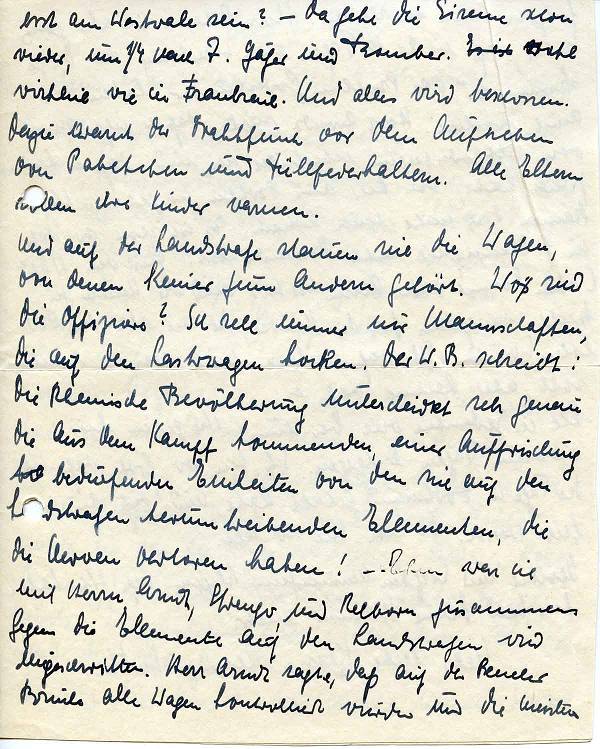 erst am Westwale sein? – Da geht die Sirene schon
wieder, um 1/4 nach 7. Jäger und Bomber. Es ist
wie in Frankreich. Und alles wird beschossen.
Dazu warnt der Drahtfunk vor dem Aufheben
von Paketchen und Füllfederhaltern. Alle Eltern
sollen ihre Kinder warnen.
Und auf der Landstraße stauen sie die Wagen,
von denen Keiner zum Andern gehört. Wo sind
die Offiziere? Ich sehe immer nur Mannschaften,
die auf den Lastwagen hocken. Der W. B. schreibt:
Die Rheinische Bevölkerung unterscheidet sehr genau
die aus dem Kampf kommenden, einer Auffrischung
bedürfenden Einheiten von den sie auf den
Landstraßen herumtreibenden Elementen, die
die Nerven verloren haben! – Eben war ich
mit Herrn Arndt, und zusammen
Gegen die Elemente auf den Landstraßen wird
eingeschritten. Herr Arndt sagte, daß auf der
alle Wagen kontrolliert würden und die meisten